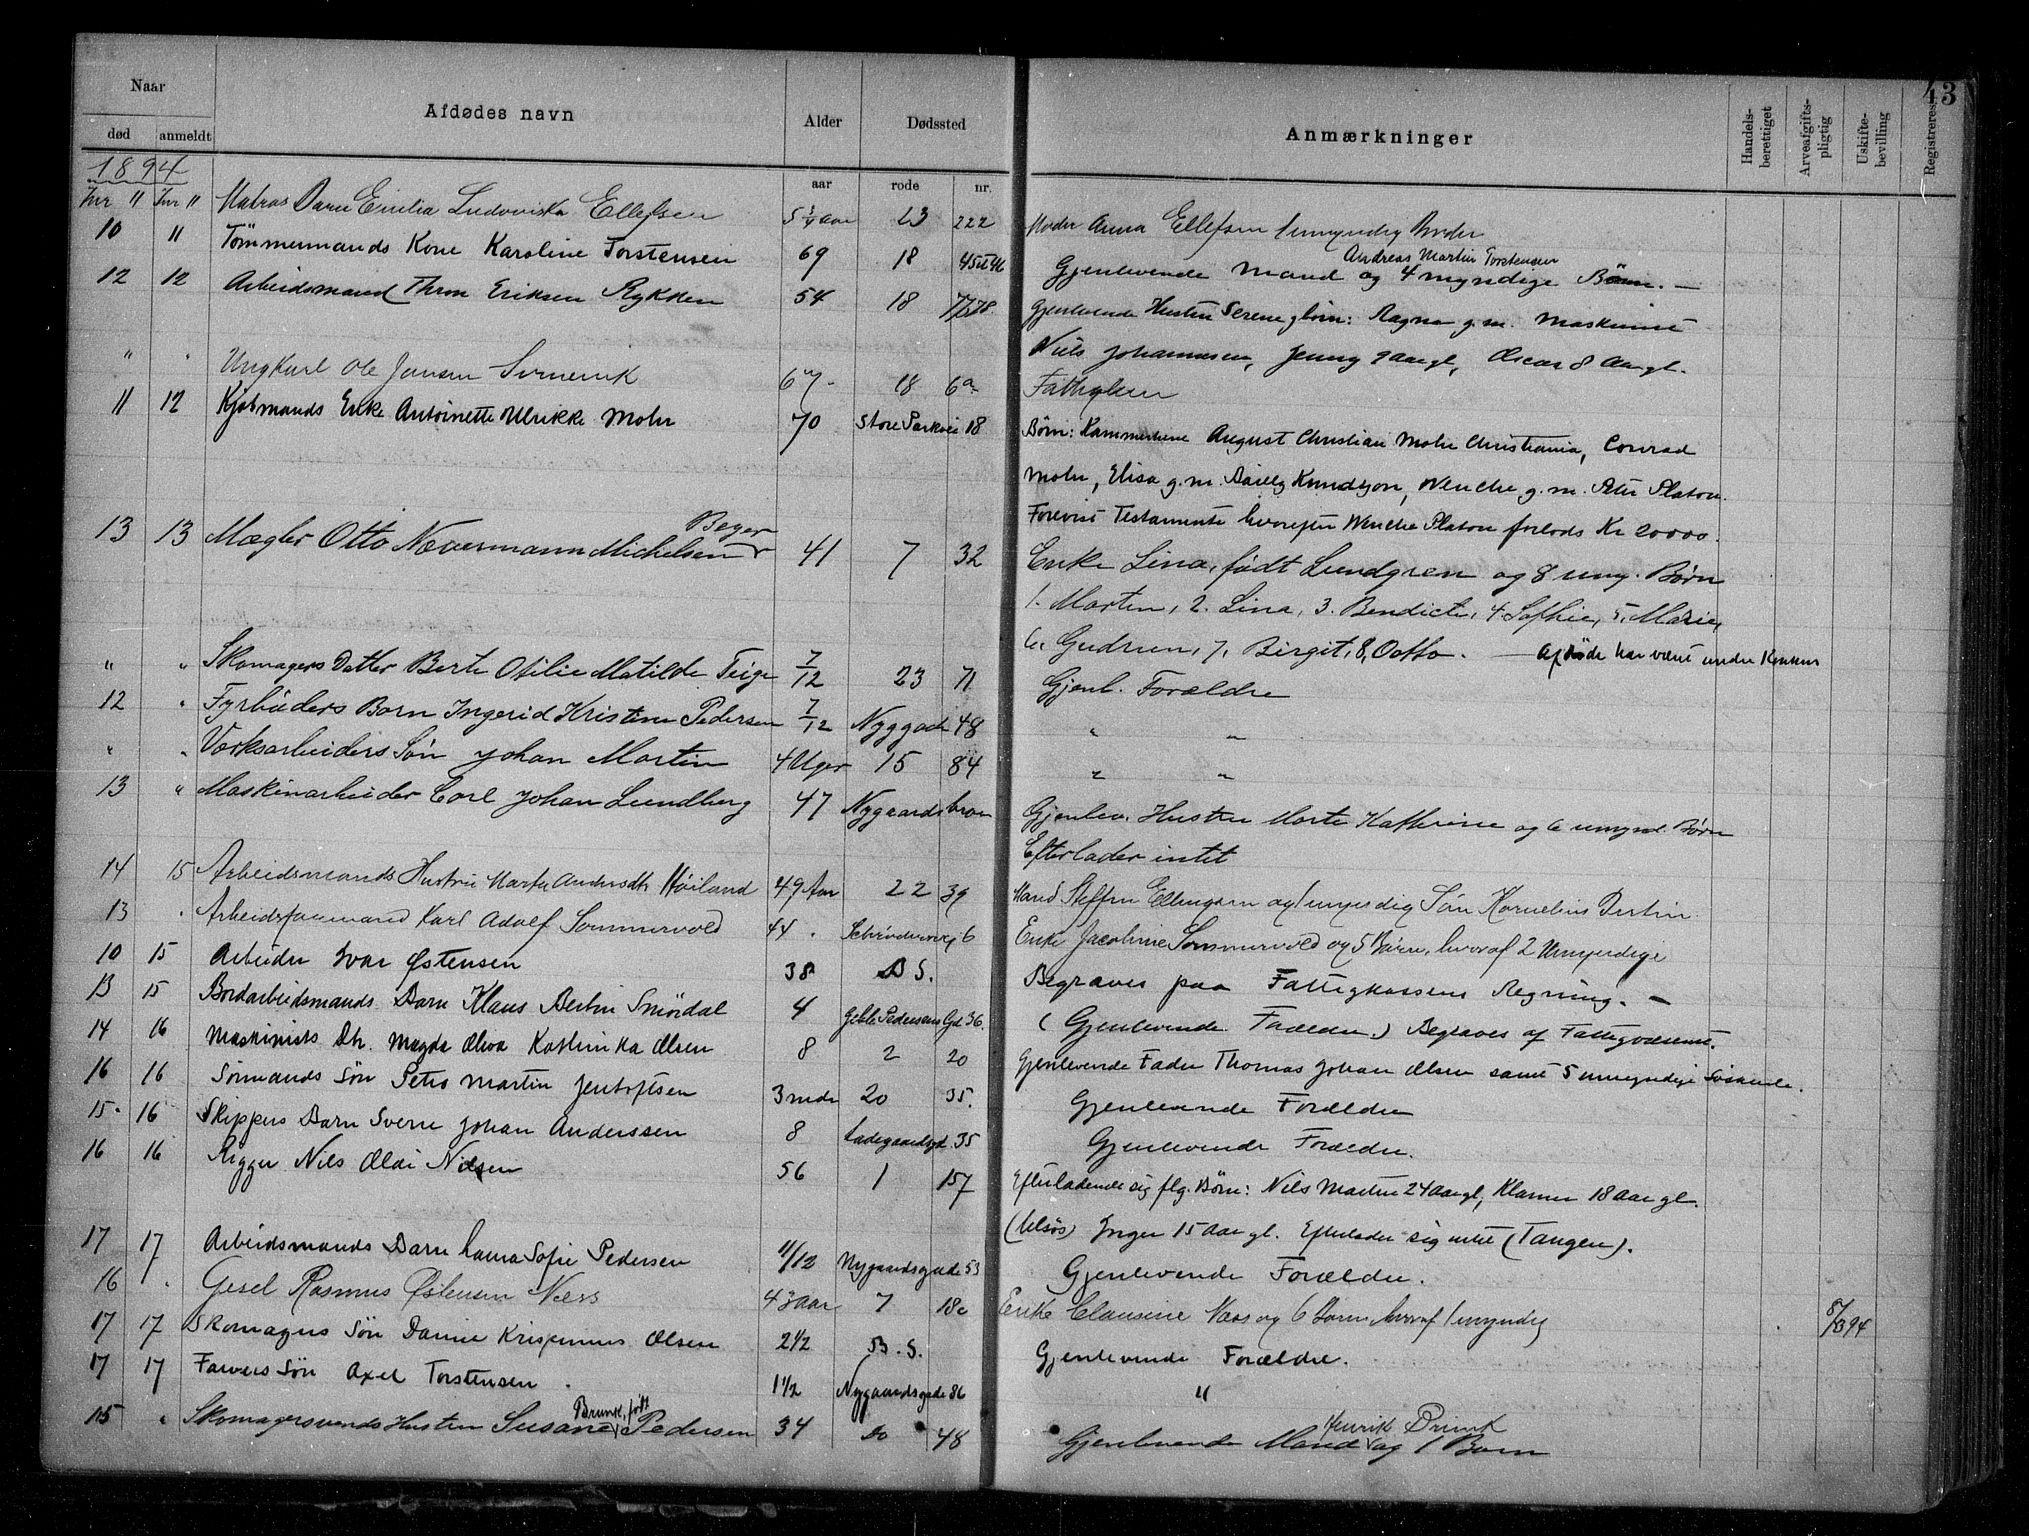 43
Naar
død anmeldt
Afdødes navn
Alder
Dødssted
Anmærkninger
Handels-berettiget
Arveafgifts-pligtig
Uskifte-bevilling
Registreres
1894
aar rode nr.
Jnr 11 Jnr 11 Matros Barn Emilia Ludoviska Ellefsen 5 3/4 aar 23 222 Moder Anna Ellefsen 1 umyndig Broder
10 " Tömmermands Kone Karoline Torstensen 69 18 45 46 Gjenlevende Mand Andreas Martin Torstensen og 4 myndige Börn. —
12 12 Arbeidsmand Thron Eriksen Rykken 54 18 77/78 Gjenlevende Hustru Serene, børn: Ragna g.m. Maskinist
Niels Johannesen, Jenny 9 aargl, Oscar 8 aargl.
" " Ungkarl Ole Jansen 67 - 18 6a
11 12 Kjøbmands Enke Antoinette Ulrikke Mohr 70 Store Parkvei 18 Børn: Kammerherre August Christian Mohr Christiania, Conrad
Mohr, Elisa g.m. Knudtzon, Wenche g.m. Peter Platou.
Forevist Testamente hvorefter Wenche Platou forlods Kr 20000.
13 13 Mægler Otto Nevermann Michelsen Beyer 41 7 32 Enke Lina, født Lundgren og 8 umy. Børn
1. Morten, 2. Lina, 3. Bendicte, 4. Sofhie, 5. Marie,
6. Gudrun, 7. Birgit, 8. Ootto. — Afdøde har været under Konkurs
" " Skomagers Datter Berte Otilie Matilde Teige 7/12 23 71 Gjenl. Forældre
12 " Fyrbøders Barn Ingerid Kristine Pedersen 7/12 Nyggade 48 " "
" " Værksarbeiders Søn Johan Martin 4 Uger 15 84 " "
13 " Maskinarbeider Carl Johan Lundberg 47 Nygaardsbroen Gjenlev. Hustru Marte Kathrine og 6 umynd. Børn
Efterlader intet
14 15 Arbeidsmands Hustru Marta Andersdtr Høiland 49 Aar 22 39 Mand Steffen Ellingsen og 1 umyndig Søn Kornelius Bertin
13 " Arbeidsformand Karl Adolf Sommervold 44 " 6 Enke Jacobine Sommervold og 5 Børn, hvoraf 2 Umyndige
10 15 Arbeider Ivar Østensen 38 B S. Begraves paa Fattigkassens Regning. —
13 15 Bordarbeidsmands Barn Klaus Bertin Smördal 4 Geble Pedersens Gd 36. (Gjenlevende Forældre.) Begraves af Fattigvæsenet.
14 16 Maskinists Dtr. Magda Olava Kathinka Olsen 8 2 20 Gjenlevende Fader Thomas Johan Olsen samt 5 umyndige Søskende.
16 16 Sømands Søn Petro Martin Jentoftsen 3 mdr 20 35. Gjenlevende Forældre
15 16 Skippers Barn Sverre Johan Anderssen 8 Ladegaardsgd. 35 Gjenlevende Forældre.
16 16 Rigger Nils Olai Nilsen 56 1 157 Efterladende sig flg. Børn: Nils Martin 24 aar gl, Klamer 18 aar gl.
Inger 15 aar gl. Efterlader sig intet (Tangen).
17 17 Arbeidsmands Barn Laura Sofie Pedersen 11/12 Nygaardsgade 53 Gjenlevende Forældre.
16 " Gesel Rasmus Østensen Næss 43 aar 7 18c Enke Clausine Næss og 6 Børn, hvoraf 1 myndig 8/3 94
17 17 Skomagers Søn Danine Krispinus Olsen 2 1/2 B.S. Gjenlevende Forældre.
17 17 Farvers Søn Axel Torstensen 1 1/2 Nygaardsgade 86 "
15 " Skomagersvends Hustru Susane Brunk, født Pedersen 34 Do 48 Gjenlevende Mand Henrik Brunk og 1 Barn